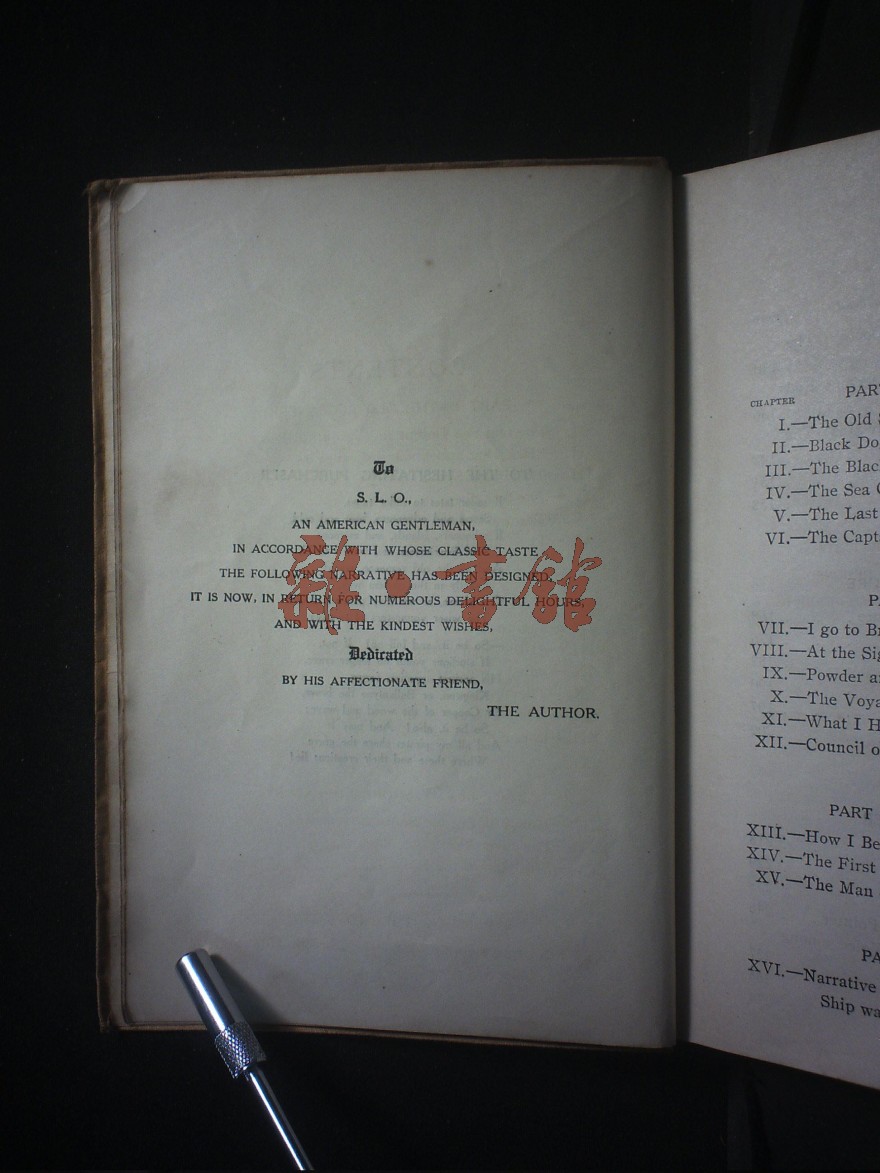 To
S. L. O.,
AN AMERICAN GENTLEMAN,
IN ACCORDANCE WITH WHOSE CLASSIC TASTE
THE FOLLOWING NARRATIVE HAS BEEN DESIGNED,
IT IS NOW, IN RETURN FOR NUMEROUS DELIGHTFUL HOURS,
AND WITH THE KINDEST WISHES,
Dedicated
BY HIS AFFECTIONATE FRIEND,
THE AUTHOR.
雜·書館
PAR
CHAPTER
I.—The Old
II.—Black Do
III.—The Blac
IV.—The Sea
V.—The Last
VI.—The Capt
P
VII.—I go to Br
VIII.—At the Sig
IX.—Powder a
X.—The Voya
XI.—What I H
XII.—Council o
PART
XIII.—How I Be
XIV.—The First
XV.—The Man
PA
XVI.—Narrative
Ship wa